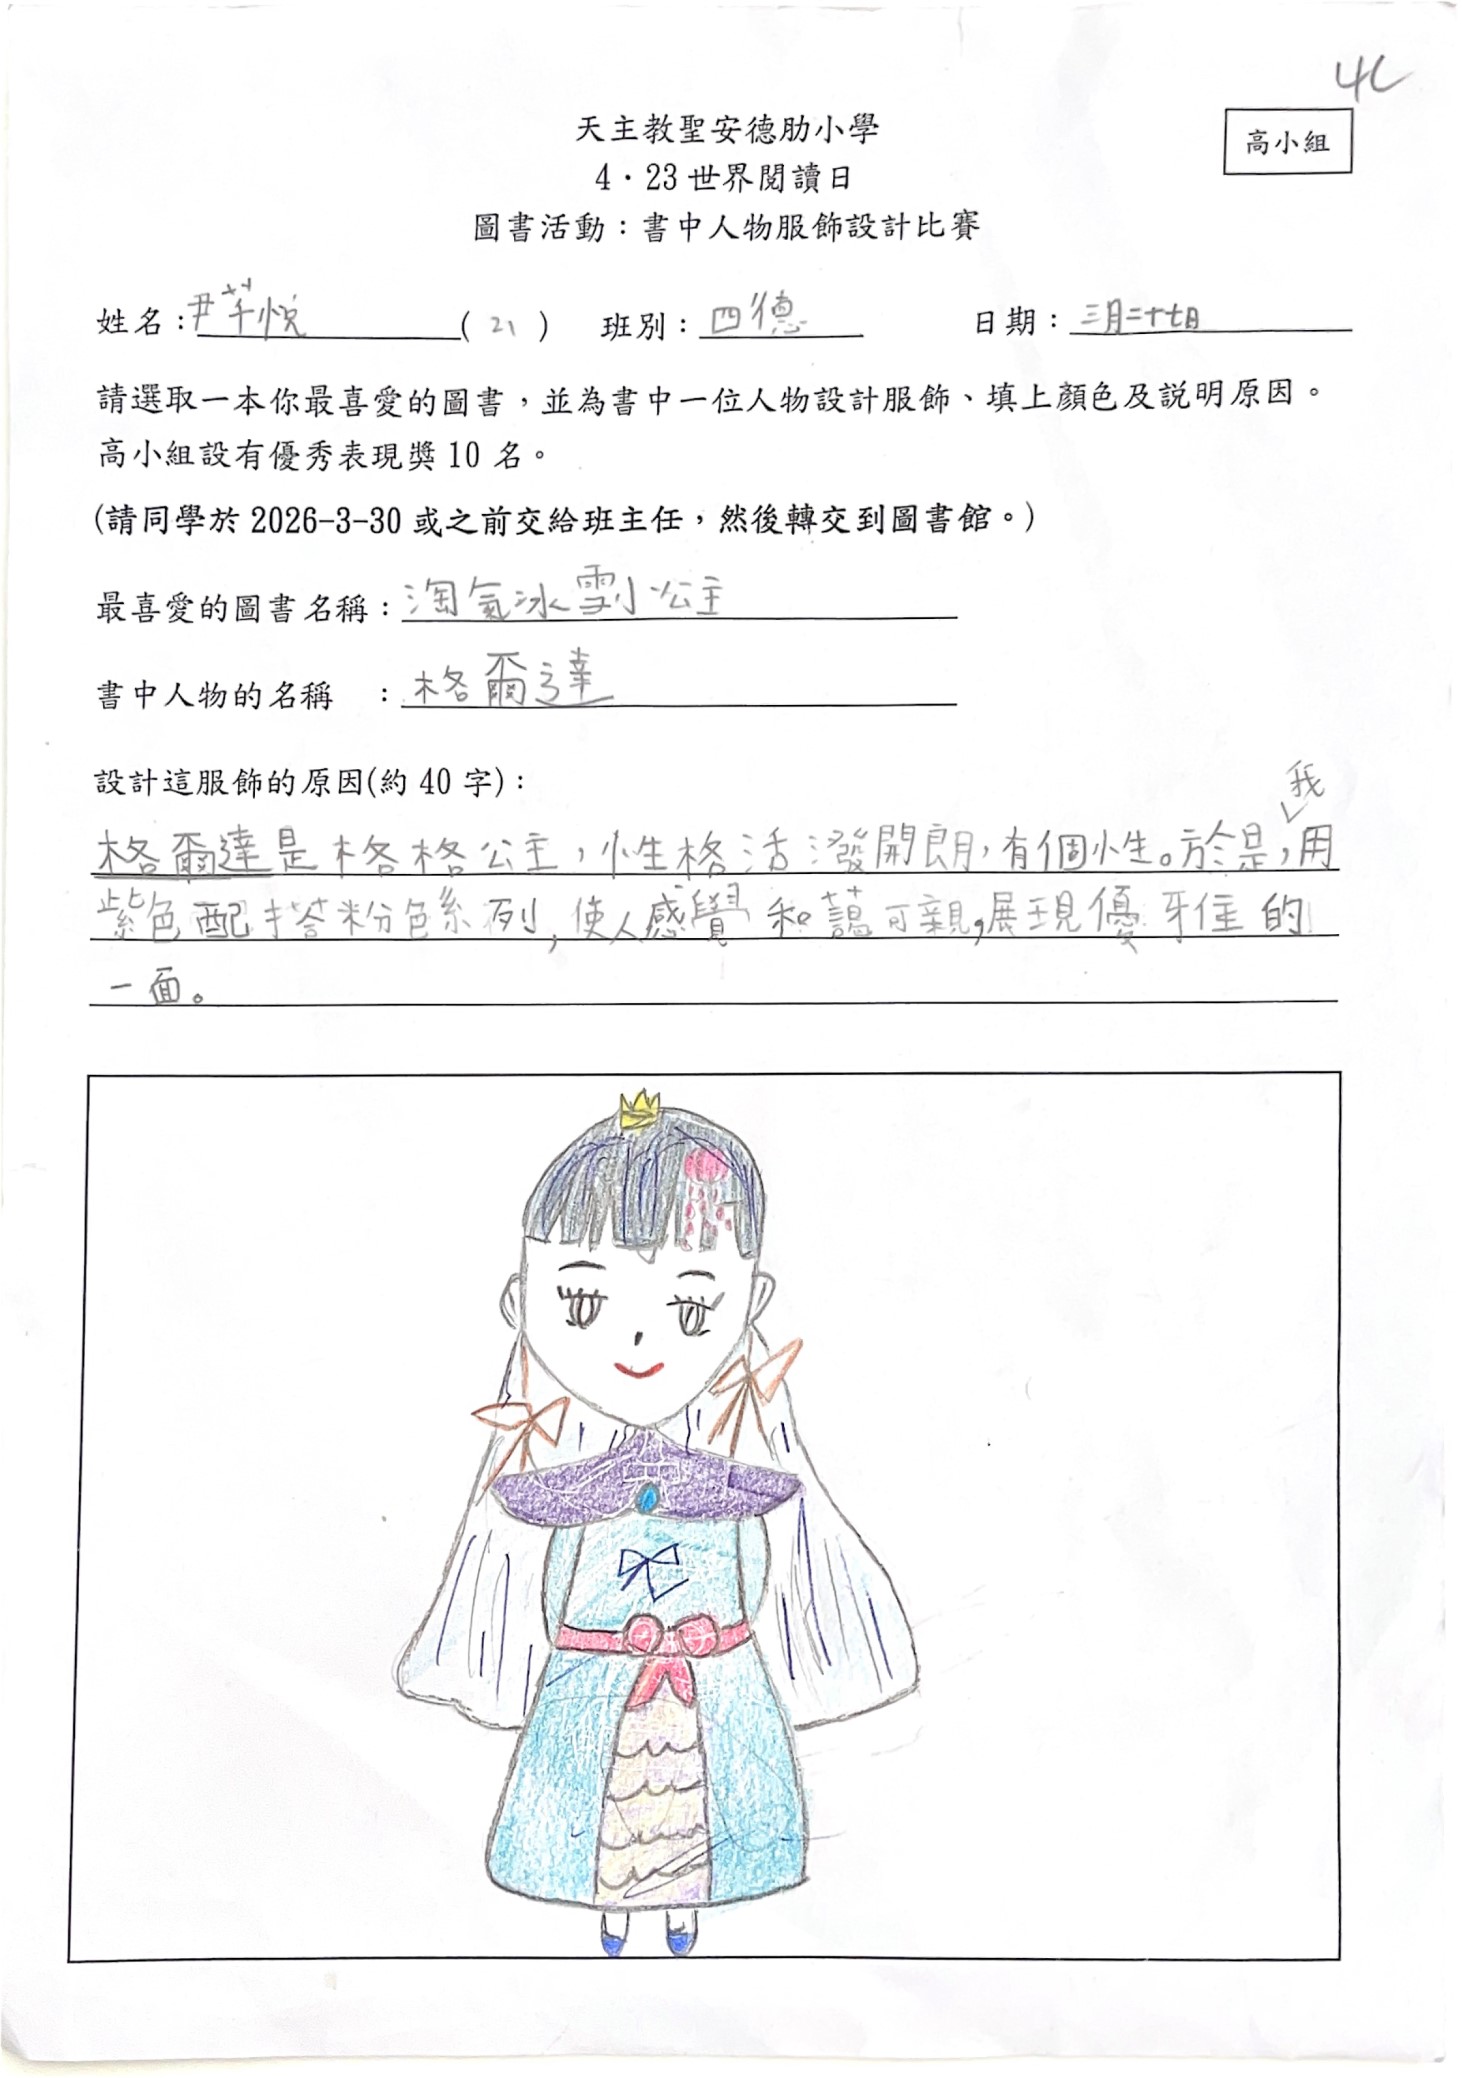 4C
高小組
天主教聖安德肋小學
4·23世界閱讀日
圖書活動：書中人物服飾設計比賽
姓名：尹芊悅(21) 班別：四德 日期：三月二十七日
請選取一本你最喜愛的圖書，並為書中一位人物設計服飾、填上顏色及說明原因。
高小組設有優秀表現獎10名。
(請同學於2026-3-30或之前交給班主任，然後轉交到圖書館。)
最喜愛的圖書名稱：淘氣冰雪小公主
書中人物的名稱 ：格爾達
設計這服飾的原因(約40字)：
格爾達是格格公主，性格活潑開朗，有個性。於是，我用
紫色配搭粉色系列，使人感覺和藹可親，展現優雅的
一面。